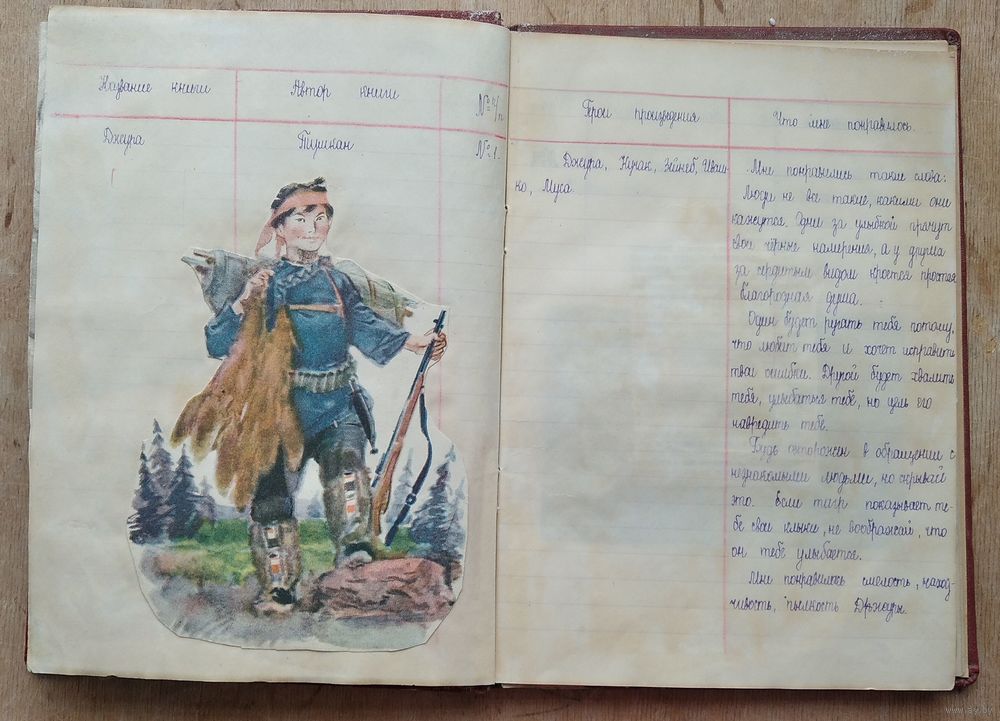 Название книги
Автор книги
№ п/п
Джура
Тушкан
№ 1.
Герои произведения
Что мне понравилось.
Джура, Кучак, Зейнеб, Иваш-
ко, Муса
Мне понравились такие слова:
Люди не все такие, какими они
кажутся. Одни за улыбкой прячут
свои чёрные намерения, а у других
за сердитым видом кроется простая
благородная душа.
Один будет ругать тебя потому,
что любит тебя и хочет исправить
твои ошибки. Другой будет хвалить
тебя, улыбаться тебе, но цель его
навредить тебе.
Будь осторожен в обращении с
незнакомыми людьми, но скрывай
это. Если тигр показывает те-
бе свои клыки, не воображай, что
он тебе улыбается.
Мне понравилось смелость, наход-
чивость, пылкость Джуры.
www.ay.by